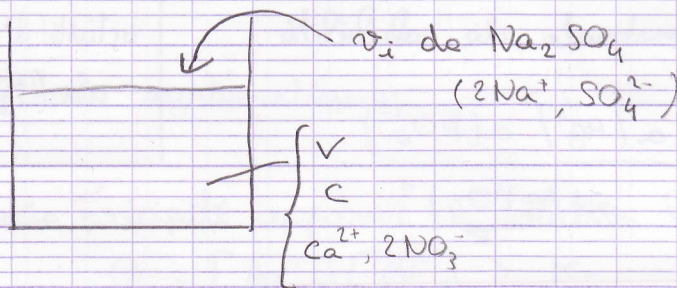 vi de Na₂SO₄
(2Na⁺, SO₄²⁻)
V
C
Ca²⁺, 2NO₃⁻